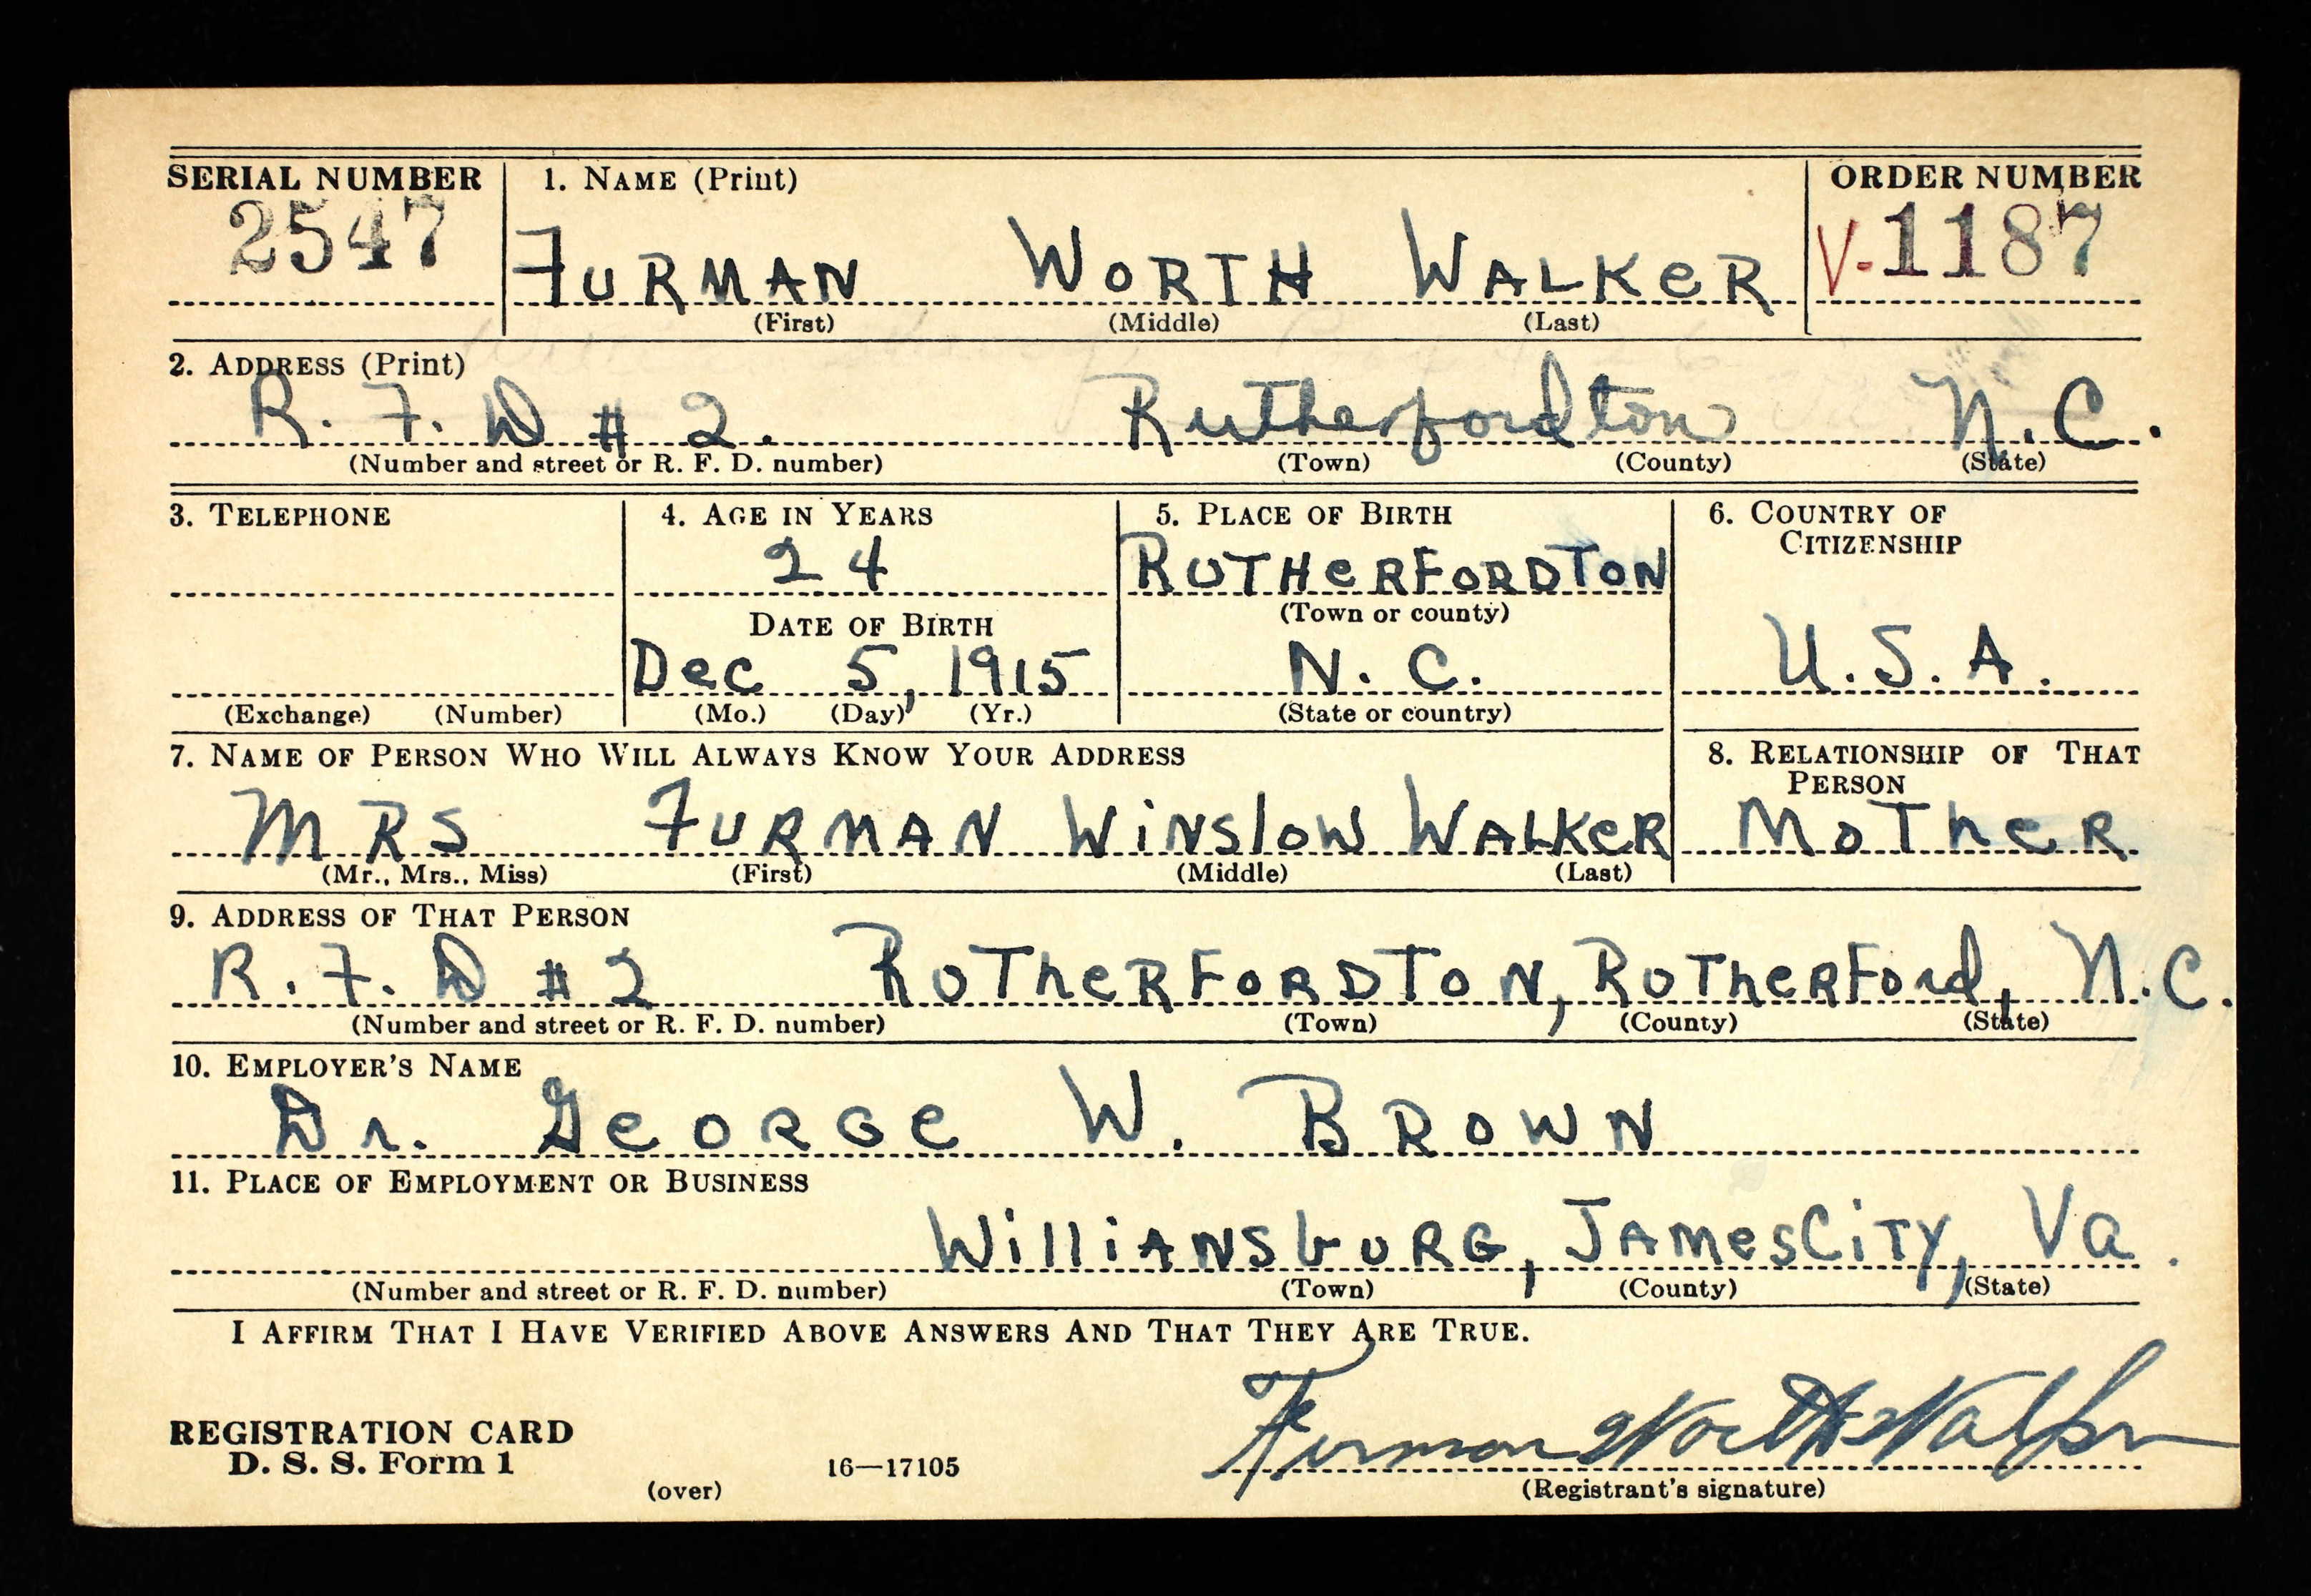 SERIAL NUMBER 1. NAME (Print) ORDER NUMBER
2547 FURMAN WORTH WALKER V-1187
(First) (Middle) (Last)
2. ADDRESS (Print)
R. F. D # 2. Rutherfordton N.C.
(Number and street or R. F. D. number) (Town) (County) (State)
3. TELEPHONE 4. AGE IN YEARS 5. PLACE OF BIRTH 6. COUNTRY OF
CITIZENSHIP
24 RUTHeRFORDTON
DATE OF BIRTH (Town or county)
Dec 5, 1915 N. C. U.S.A.
(Exchange) (Number) (Mo.) (Day) (Yr.) (State or country)
7. NAME OF PERSON WHO WILL ALWAYS KNOW YOUR ADDRESS 8. RELATIONSHIP OF THAT
PERSON
MRS FURMAN WiNslow WALKeR MoTheR
(Mr., Mrs., Miss) (First) (Middle) (Last)
9. ADDRESS OF THAT PERSON
R. F. D # 2 RuTheRFORDTON, RuTheRFord, N.C.
(Number and street or R. F. D. number) (Town) (County) (State)
10. EMPLOYER'S NAME
Dr. GeORGe W. BROWN
11. PLACE OF EMPLOYMENT OR BUSINESS
WilliANSbURG, JAMesCiTY, Va.
(Number and street or R. F. D. number) (Town) (County) (State)
I AFFIRM THAT I HAVE VERIFIED ABOVE ANSWERS AND THAT THEY ARE TRUE.
Furman Worth Walker
REGISTRATION CARD
D. S. S. Form 1 16—17105
(over) (Registrant's signature)